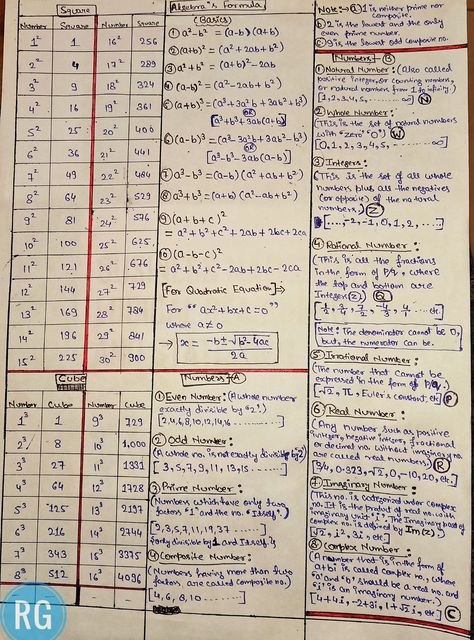 Square
Number Square Number Square
1² 1 16² 256
2² 4 17² 289
3² 9 18² 324
4² 16 19² 361
5² 25 20² 400
6² 36 21² 441
7² 49 22² 484
8² 64 23² 529
9² 81 24² 576
10² 100 25² 625
11² 121 26² 676
12² 144 27² 729
13² 169 28² 784
14² 196 29² 841
15² 225 30² 900
Cube
Number Cube Number Cube
1³ 1 9³ 729
2³ 8 10³ 1,000
3³ 27 11³ 1331
4³ 64 12³ 1728
5³ 125 13³ 2197
6³ 216 14³ 2744
7³ 343 15³ 3375
8³ 512 16³ 4096
RG
Algebra's Formula
(Basics)
① a²-b² = (a-b) (a+b)
② (a+b)² = (a²+2ab+b²)
③ a²+b² = (a+b)²-2ab
④ (a-b)² = (a²-2ab+b²)
⑤ (a+b)³ = (a³+3a²b+3ab²+b³)
OR
[a³+b³+3ab(a+b)]
⑥ (a-b)³ = (a³-3a²b+3ab²-b³)
OR
[a³-b³-3ab(a-b)]
⑦ a³-b³ = (a-b) (a²+ab+b²)
⑧ a³+b³ = (a+b) (a²-ab+b²)
⑨ (a+b+c)²
= a²+b²+c²+2ab+2bc+2ca
⑩ (a-b-c)²
= a²+b²+c²-2ab+2bc-2ca
[For Quadratic Equation]→
For "ax²+bx+c=0"
where a≠0
→ x = -b±√b²-4ac
2a
Numbers-A
① Even Number: (A whole number
exactly divisible by "2".)
[2,4,6,8,10,12,14,16 ........]
② Odd Number:
(A whole no. is not exactly divisible by 2)
[3, 5, 7, 9, 11, 13, 15 ........]
③ Prime Number:
(Numbers which have only two
factors "1" and the no. "Itself".)
[2,3,5,7,11,19,37 ........]
[only divisible by 1 and Itself.]
④ Composite Number:
(Numbers having more than two
factors are called composite no.)
[4, 6, 8, 10 ........]
Note:→ ⓐ 1 is neither prime nor
composite.
ⓑ 2 is the lowest and the only
even prime number.
ⓒ 9 is the lowest odd composite no.
Numbers-B
① Natural Number: (Also called
positive integer, or counting numbers,
or natural numbers from 1 to infinity.)
[1,2,3,4,5, ........ ∞] N
② Whole Number:
(This is the set of natural numbers
with "zero" "0") W
[0,1,2,3,4,5, ........ ∞]
③ Integers:
(This is the set of all whole
numbers plus all the negatives
(or opposite) of the natural
numbers.) Z
[....,-2,-1,0,1,2, ....]
④ Rational Number:
(This is all the fractions
in the form of P/q, where
the top and bottom are
Integers(Z)) Q
Note: The denominator cannot be 0,
but, the numerator can be.
⑤ Irrational Number:
(The number that cannot be
expressed in the form of P/q.)
[√2, π, Euler's constant, etc] P
⑥ Real Number:
(Any number such as positive
integer, negative integer, fractional
or decimal no. without imaginary no.
are called real numbers) R
[3/4, 0.323, √2, 0, -10, 20, etc.]
⑦ Imaginary Number:
(This no. is categorized under complex
no. It is the product of real no. with
imaginary unit "i". The Imaginary part of
complex no. is defined by Im(z).)
[√2i, i², 3i, etc.]
⑧ Complex Number:
(A number that is in the form of
a+bi is called complex no., where
"a" and "b" should be a real no. and
"i" is an imaginary number.)
[4+4i, -2+3i, 1+√2i, etc.] C